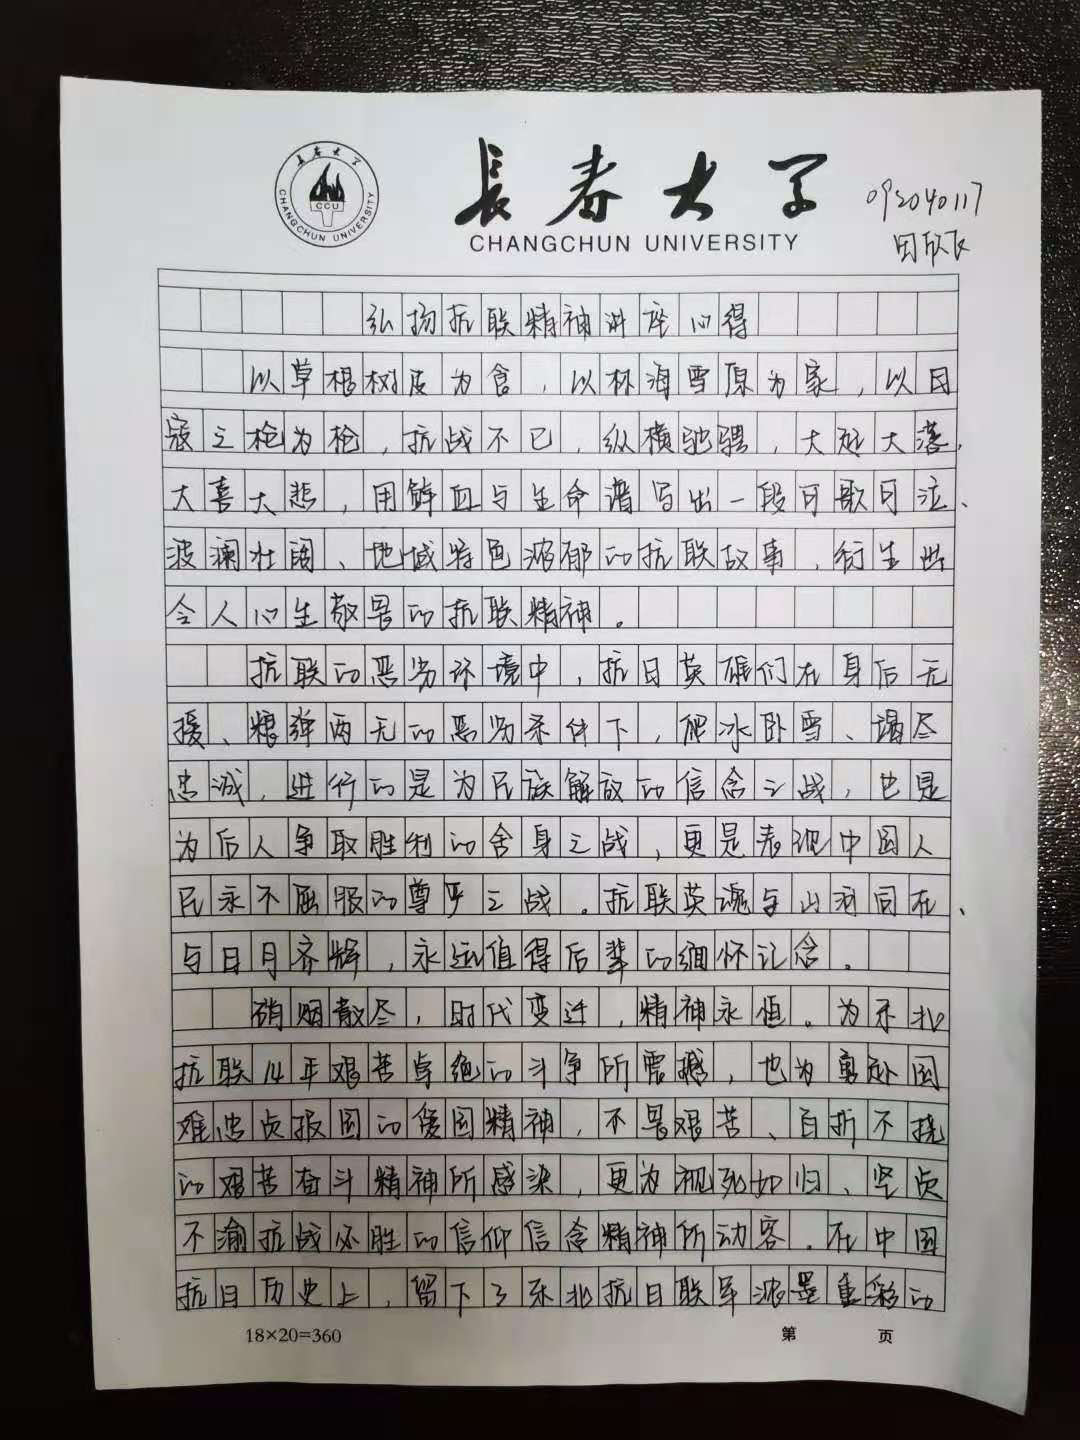 长春大学
CHANGCHUN UNIVERSITY
长春大学
CCU
CHANGCHUN UNIVERSITY
092040117
弘扬抗联精神讲座心得
以草根树皮为食,以林海雪原为家,以日
寇之枪为枪,抗战不已,纵横驰骋,大起大落,
大喜大悲,用鲜血与生命谱写出一段可歌可泣、
波澜壮阔、地域特色浓郁的抗联故事,衍生出
令人心生敬畏的抗联精神。
抗联的恶劣环境中,抗日英雄们在身后无
援、粮弹两无的恶劣条件下,爬冰卧雪、竭尽
忠诚,进行的是为民族解放的信念之战,也是
为后人争取胜利的舍身之战,更是表现中国人
民永不屈服的尊严之战。抗联英魂与山河同在、
与日月齐辉,永远值得后辈的缅怀记念。
硝烟散尽,时代变迁,精神永恒。为东北
抗联14年艰苦卓绝的斗争所震撼,也为勇赴国
难忠贞报国的爱国精神,不畏艰苦、百折不挠
的艰苦奋斗精神所感染,更为视死如归、坚贞
不渝抗战必胜的信仰信念精神所动容。在中国
抗日历史上,留下了东北抗日联军浓墨重彩的
18×20=360
第 页